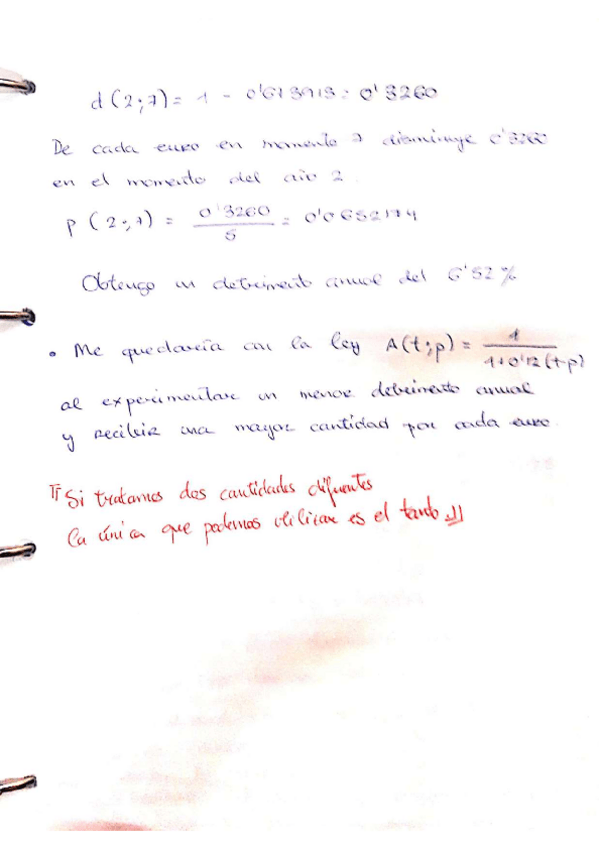 d(2;7) = 1 - 0'673913 = 0'3260
De cada euro en momento 7 disminuye 0'3260
en el momento del año 2.
p(2;7) = 0'3260 / 5 = 0'0652174
Obtengo un detrimento anual del 6'52%
• Me quedaría con la ley A(t;p) = 1 / 1+0'12(t-p)
al experimentar un menor detrimento anual
y recibir una mayor cantidad por cada euro.
Si tratamos dos cantidades diferentes
la única que podemos utilizar es el tanto.